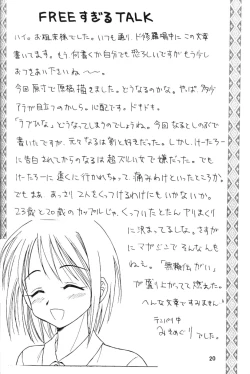 FREEすぎるTALK
ハイ。お粗末様でした。いつも通り、ド修羅場中にこの文章
書いてます。もう何書くか自分でも恐ろしいですがもう少し
おつきあい下さいね〜。
今回原寸で原稿描きました。どうなるのかな。やっぱ多少
アラが目立つのかしら。心配です。ドキドキ。
「ラブひな」どうなってしまうのでしょうね。今回なるとしのぶで
書いたですが、元々なるは割と好きだったです。しかしけーたろー
に告白されてからのなるは超ズルいて嫌だった。でも
けーたろーに遠くに行かれちゃって、痛みわけといったところか。
でもまぁ あっさり2人をくっつけるわけにもいかないか。
23歳と20歳のカップルじゃ、くっついたとたんヤりまくり
に決まってるしな。さすが
にマガジンでそんなんも
ねぇ。「無頼伝ガイ」
が盛り上がってて燃えた。
へんな文章ですみません
でした。
20